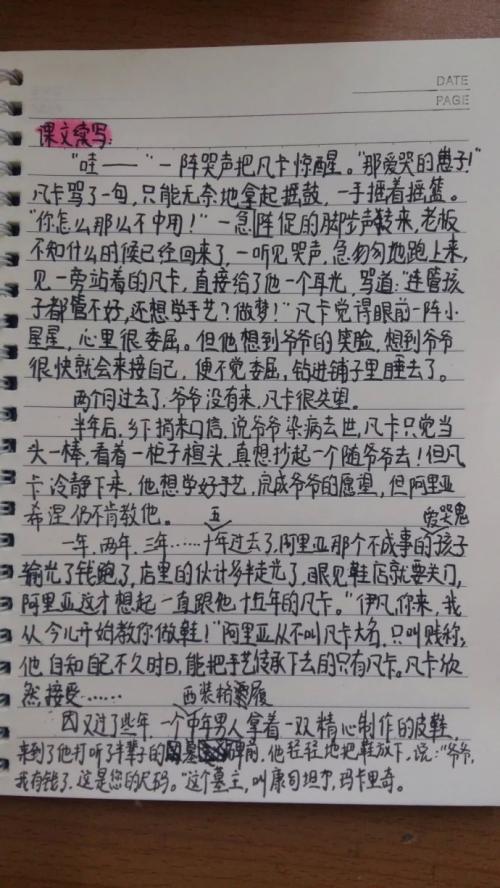 DATE
PAGE
课文续写:
"哇——"一阵哭声把凡卡惊醒。"那爱哭的崽子!"
凡卡骂了一句,只能无奈地拿起摇鼓,一手摇着摇篮。
"你怎么那么不中用!"一急阵促的脚步声转来,老板
不知什么时候已经回来了,一听见哭声,急匆匆地跑上来,
见一旁站着的凡卡,直接给了他一个耳光,骂道:"连管孩
子都管不好,还想学手艺?做梦!"凡卡觉得眼前一阵小
星星,心里很委屈。但他想到爷爷的笑脸,想到爷爷
很快就会来接自己,便不觉委屈,钻进铺子里睡去了。
两个月过去了,爷爷没有来,凡卡很失望。
半年后,乡下捎来口信,说爷爷染病去世,凡卡只觉当
头一棒,看着一柜子楦头,真想抄起一个随爷爷去!但凡
卡冷静下来,他想学好手艺,完成爷爷的愿望,但阿里亚
希涅仍不肯教他。
五 爱哭鬼
一年,两年,三年……十年过去了,阿里亚那个不成事的孩子
输光了钱跑了,店里的伙计多半走光了,眼见鞋店就要关门,
阿里亚这才想起一直跟他十五年的凡卡。"伊凡,你来,我
从今儿开始教你做鞋!"阿里亚从不叫凡卡大名,只叫贱称;
他自知自己不久时日,能把手艺传承下去的只有凡卡。凡卡欣
然接受……
西装革履
又过了些年,一个中年男人拿着一双精心制作的皮鞋,
来到了他打听了半辈子的墓碑前,他轻轻地把鞋放下,说:"爷爷,
我有钱了,这是您的尺码。"这个墓主,叫康司坦丁,玛卡里奇。